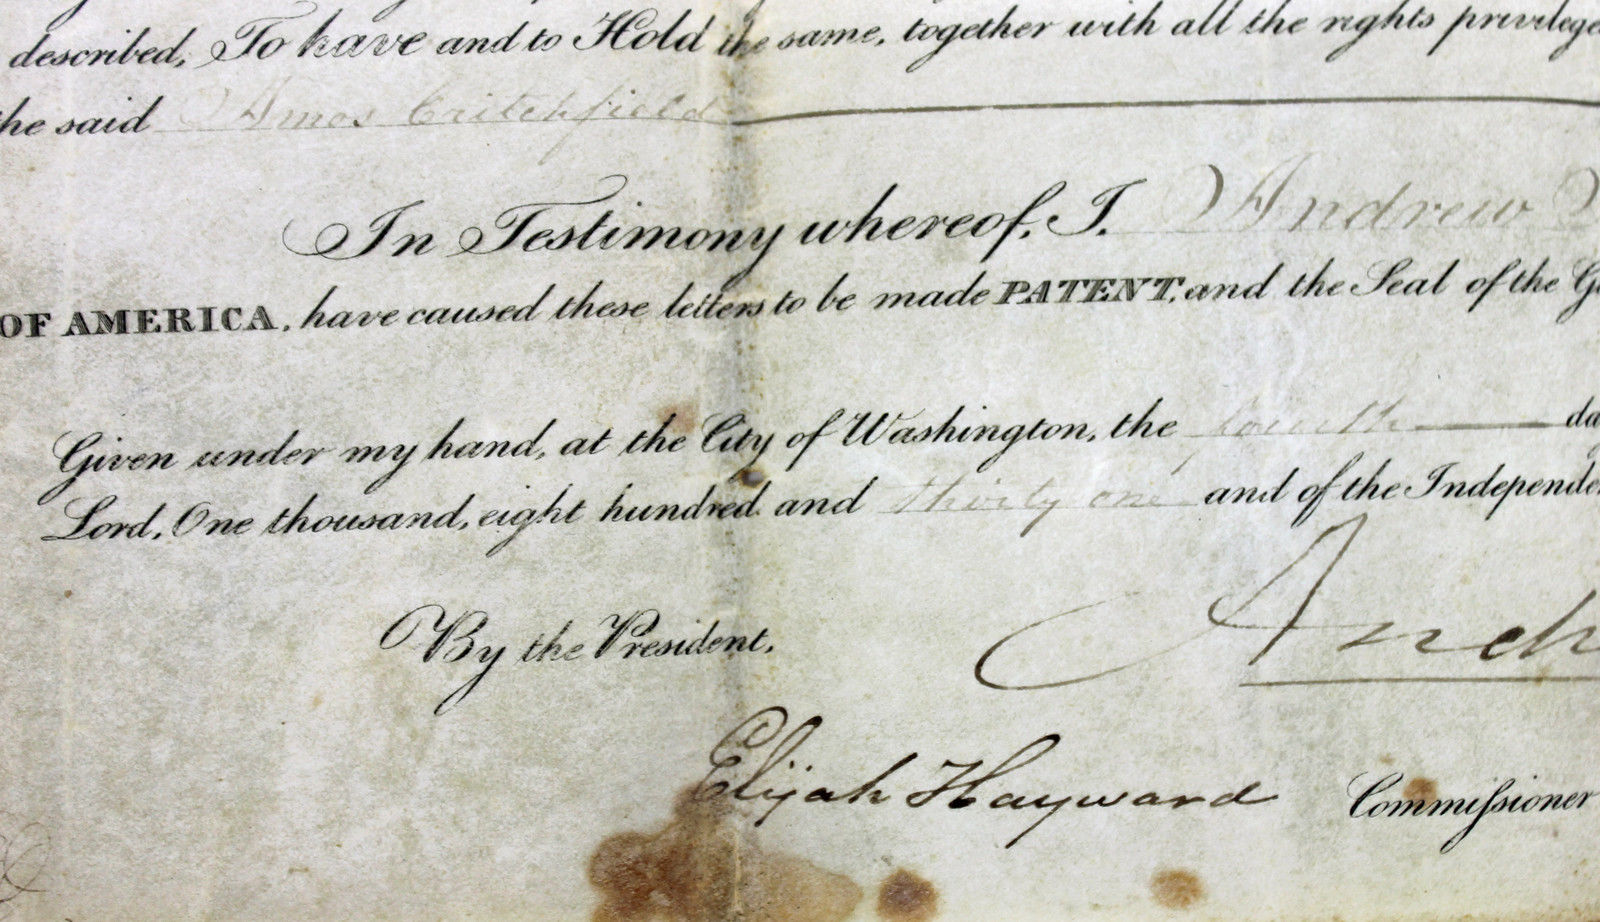 described, To have and to Hold the same, together with all the rights privilege
he said Amos Critchfield
In Testimony whereof, I, Andrew
OF AMERICA, have caused these letters to be made PATENT, and the Seal of the Ge
Given under my hand, at the City of Washington, the fourth da
Lord, One thousand, eight hundred and thirty one and of the Independe
By the President,
And
Elijah Hayward Commissioner